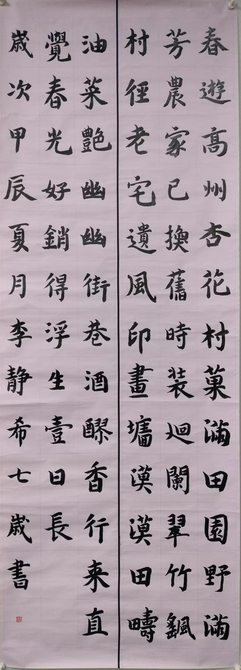 春遊高州杏花村菓滿田園野滿
芳農家已換舊時裝迴闌翠竹飄
村徑老宅遺風印畫墻漠漠田疇
油菜艷幽幽街巷酒醪香行來直
覺春光好銷得浮生壹日長
歲次甲辰夏月李静希七歲書